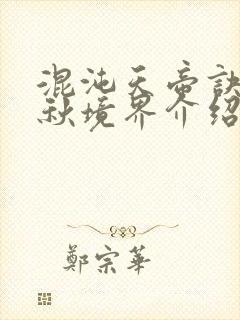 混沌天帝訣
秋境界介紹
鄭宗華